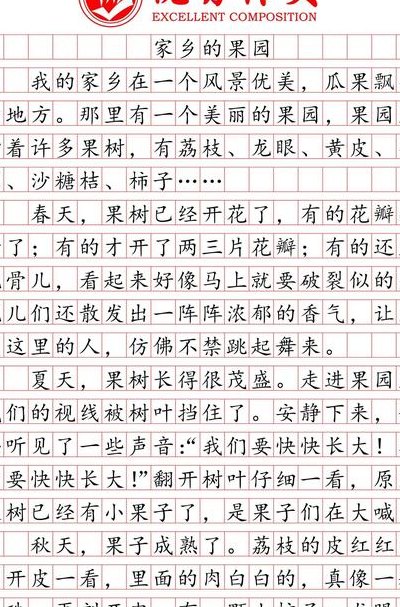 EXCELLENT COMPOSITION
家乡的果园
我的家乡在一个风景优美，瓜果飘
地方。那里有一个美丽的果园，果园
着许多果树，有荔枝、龙眼、黄皮、
、沙糖桔、柿子……
春天，果树已经开花了，有的花瓣
了；有的才开了两三片花瓣；有的还
骨儿，看起来好像马上就要破裂似的
儿们还散发出一阵阵浓郁的香气，让
这里的人，仿佛不禁跳起舞来。
夏天，果树长得很茂盛。走进果园
们的视线被树叶挡住了。安静下来，
听见了一些声音：“我们要快快长大！
要快快长大！”翻开树叶仔细一看，原
树已经有小果子了，是果子们在大喊
秋天，果子成熟了。荔枝的皮红红
开皮一看，里面的肉白白的，真像一